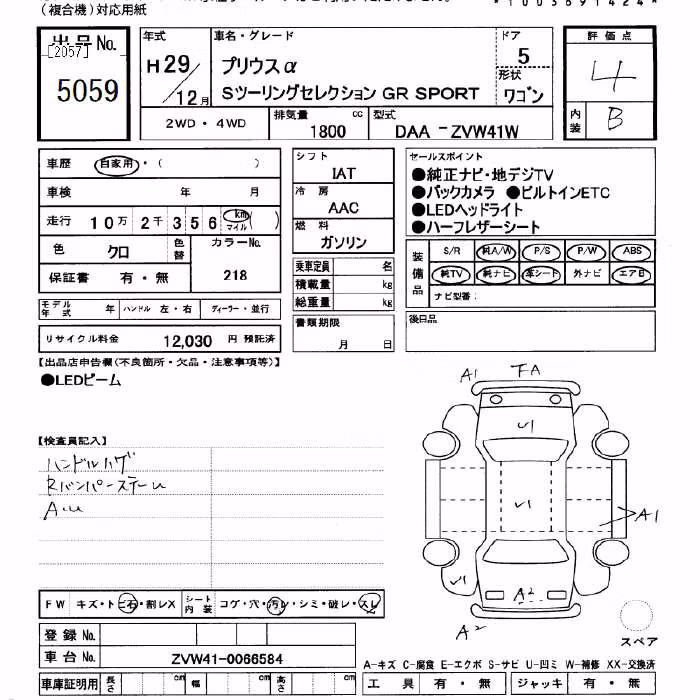 (複合機)対応用紙
*1003691424*
出品No.
[2057]
5059
年式
H29/12月
車名・グレード
プリウスα
Sツーリングセレクション GR SPORT
ドア
5
形状
ワゴン
評価点
4
内装
B
2WD・4WD
排気量
1800 cc
型式
DAA-ZVW41W
車歴 自家用・( )
車検 年 月
走行 10万 2千 3 5 6 km マイル ( )
色 クロ
色替
カラーNo.
218
保証書 有・無
シフト
IAT
冷房
AAC
燃料
ガソリン
乗車定員 名
積載量 kg
総重量 kg
セールスポイント
●純正ナビ・地デジTV
●バックカメラ ●ビルトインETC
●LEDヘッドライト
●ハーフレザーシート
装備品
S/R 純A/W P/S P/W ABS
純TV 純ナビ 革シート 外ナビ エアB
ナビ型番:
モデル年式 年 ハンドル 左・右 ディーラー・並行
リサイクル料金 12,030 円 預託済
書類期限
月 日
後日品
【出品店申告欄(不良箇所・欠品・注意事項等)】
●LEDビーム
【検査員記入】
ハンドルハゲ
RバンパーステーU
A.U
A1 FA
U1
U1
A1
U1
A2
A2
スペア
FW キズ・トビ石・割レX
シート内装 コゲ・穴・汚レ・シミ・破レ・スレ
登録No.
車台No. ZVW41-0066584
車庫証明用 長さ cm 幅 cm 高さ cm
A-キズ C-腐食 E-エクボ S-サビ U-凹ミ W-補修 XX-交換済
工具 有・無 ジャッキ 有・無